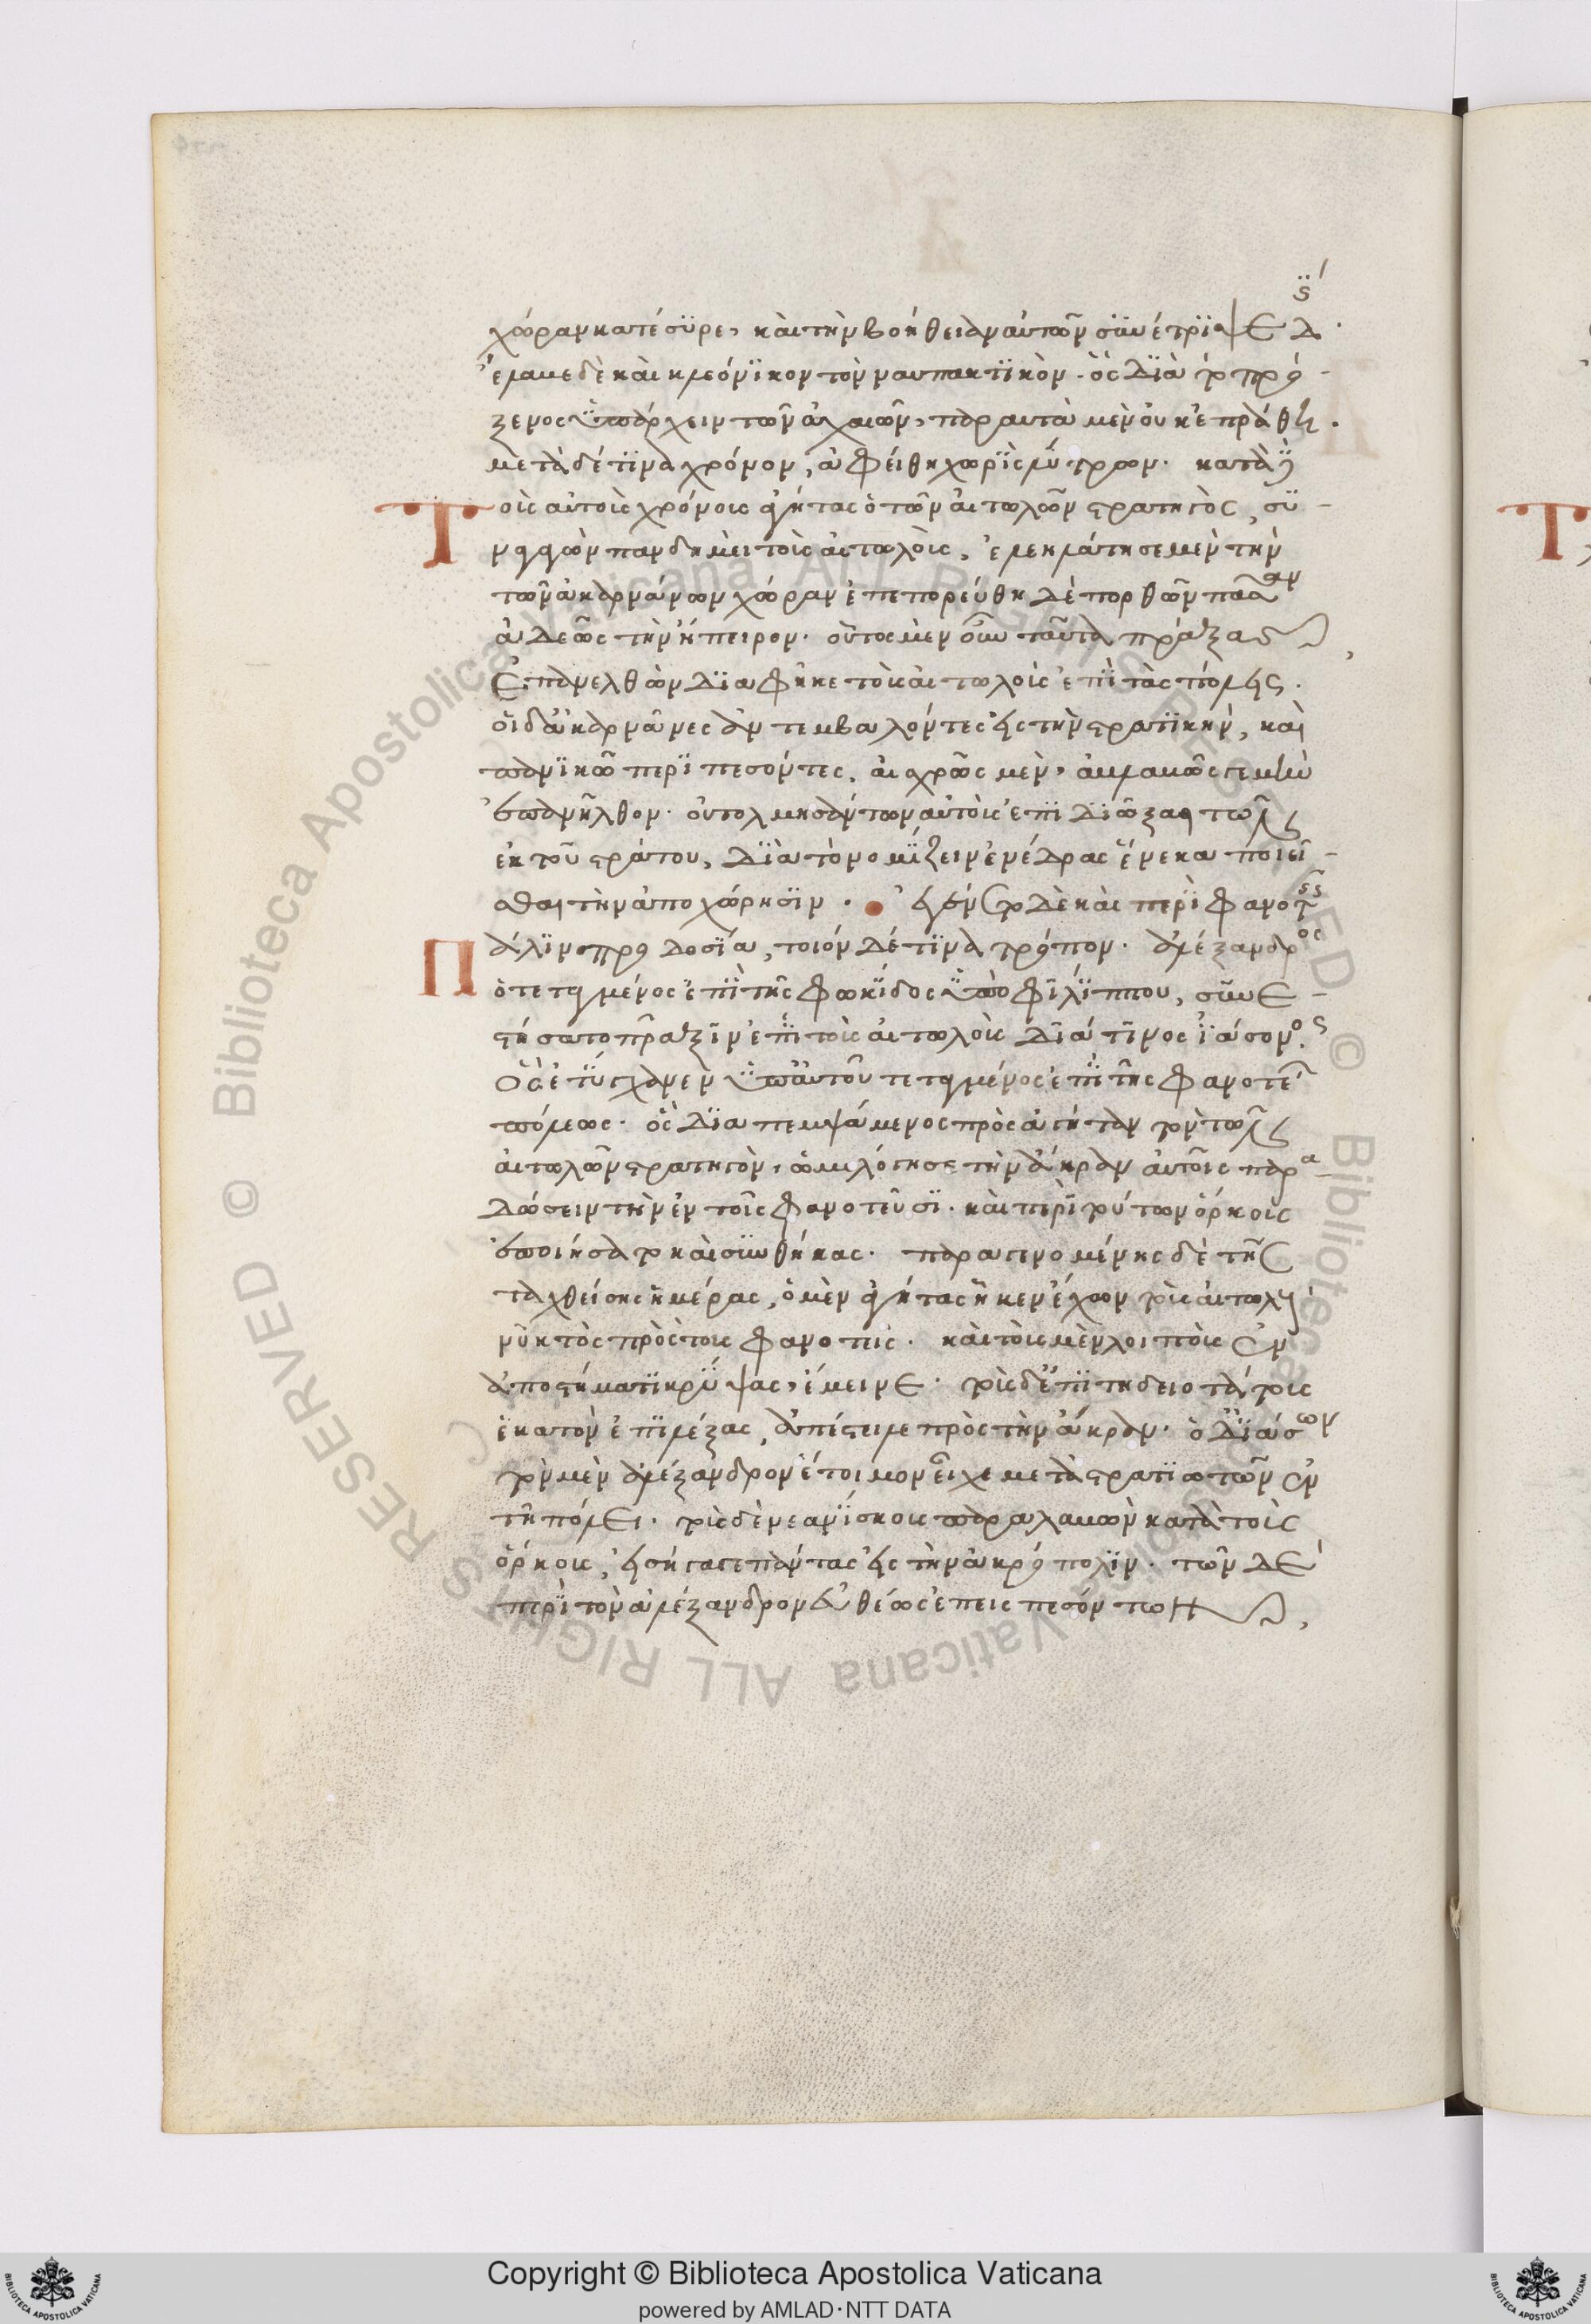 ς´
χώραν κατέσϋρε, καὶ τὴν βοήθειαν αὐτῶν σϋνέτριψε δ.
ἔλαβε δὲ καὶ κλεόνϊκον τὸν ναυπακτϊκὸν. ὃς δϊὰ τὸ πρό-
ξενος ὑπάρχειν τῶν ἀχαιῶν, παραυτὰ μὲν οὐκ ἐπράθη.
μετὰ δέ τϊνα χρόνον, ἀφείθη χωρὶς λύτρων. κατὰ δὲ
Τοὺς αὐτοὺς χρόνους ἀγήτας ὁ τῶν αἰτωλῶν στρατηγὸς, συ-
ναγαγὼν πανδημεὶ τοὺς αἰτωλοὺς, ἐλεηλάτησε μὲν τὴν
τῶν ἀκαρνάνων χώραν ἐπεπορεύθη δὲ πορθῶν πᾶσαν
ἀδεῶς τὴν ἤπειρον. οὗτος μὲν οὖν ταῦτα πράξας
ἐπανελθὼν διαφῆκε τοὺς αἰτωλοὺς ἐπὶ τὰς πόλεις.
οἱ δ' ἀκαρνᾶνες ἀντεμβαλόντες εἰς τὴν στρατικὴν, καὶ
πανϊκῶ περιπεσόντες, αἰσχρῶς μὲν, ἀβλαβῶς γε μὴν
ἐπανῆλθον. οὐ τολμησάντων αὐτοὺς ἐπιδιῶξαι τῶν
ἐκ τοῦ στράτου, διὰ τὸ νομίζειν ἐνέδρας ἕνεκα ποιεῖ-
σθαι τὴν ἀποχώρησϊν. ἐγένετο δὲ καὶ περὶ φανοτεῖς
Πάλϊν προδοσία, τοιόνδέ τϊνα τρόπον. ἀλέξανδρος
ὁ τεταγμένος ἐπὶ τῆς φωκίδος ὑπὸ φιλίππου, συνε-
στήσατο πρᾶξιν ἐπὶ τοὺς αἰτωλοὺς διά τινος ἰάσονος.
ὃς ἐτύγχανεν ὑπ' αὐτοῦ τεταγμένος ἐπὶ τῆς φανοτέων
πόλεως. ὃς διαπεμψάμενος πρὸς ἀγήταν τὸν τῶν
αἰτωλῶν στρατηγὸν, ὡμολόγησε τὴν ἄκραν αὐτοῖς παρα-
δώσειν τὴν ἐν τοῖς φανοτεῦσι. καὶ περὶ τούτων ὅρκους
ἐποιήσατο καὶ συνθήκας. παραγενομένης δὲ τῆς
ταχθείσης ἡμέρας, ὁ μὲν ἀγήτας ἧκεν ἔχων τοὺς αἰτωλοὺς
νυκτὸς πρὸς τοὺς φανοτεῖς. καὶ τοὺς μὲν λοιποὺς ἐν
ἀποστήματι κρύψας, ἔμεινε. τοὺς δ' ἐπιτηδειοτάτους
ἑκατὸν ἐπιλέξας, ἀπέστειλε πρὸς τὴν ἄκραν. ὁ δ' ἰάσων
τὸν μὲν ἀλέξανδρον ἕτοιμον εἶχε μετὰ στρατιωτῶν ἐν
τῇ πόλει. τοὺς δὲ νεανίσκους παραλαβὼν κατὰ τοὺς
ὅρκους, εἰσήγαγε πάντας εἰς τὴν ἀκρόπολιν. τῶν δὲ
περὶ τὸν ἀλέξανδρον εὐθέως ἐπεισπεσόντων
Copyright © Biblioteca Apostolica Vaticana
powered by AMLAD·NTT DATA